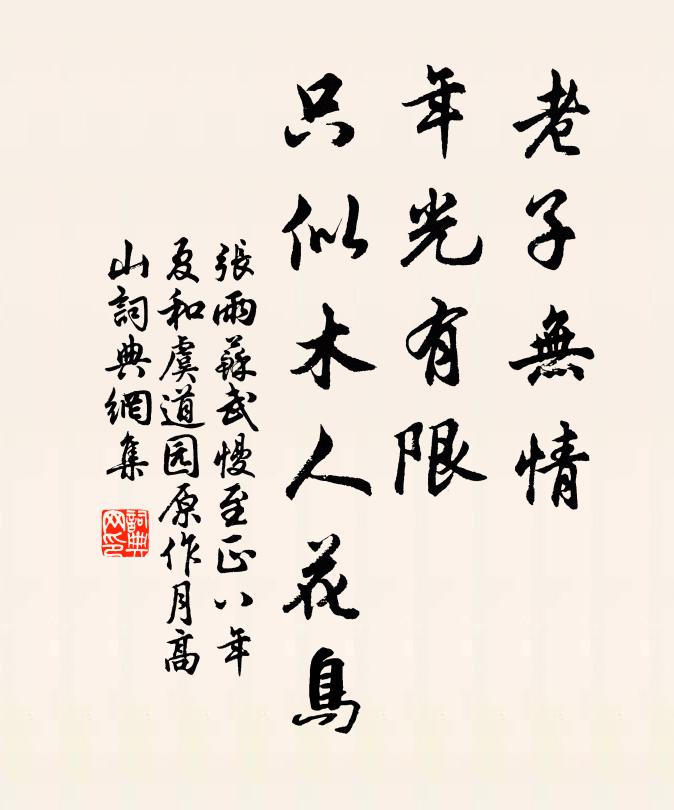 老子無情
年光有限
只似木人花鳥
張雨蘇武慢至正八年
夏和虞道园原作月高
山詞典網集
詞典网印